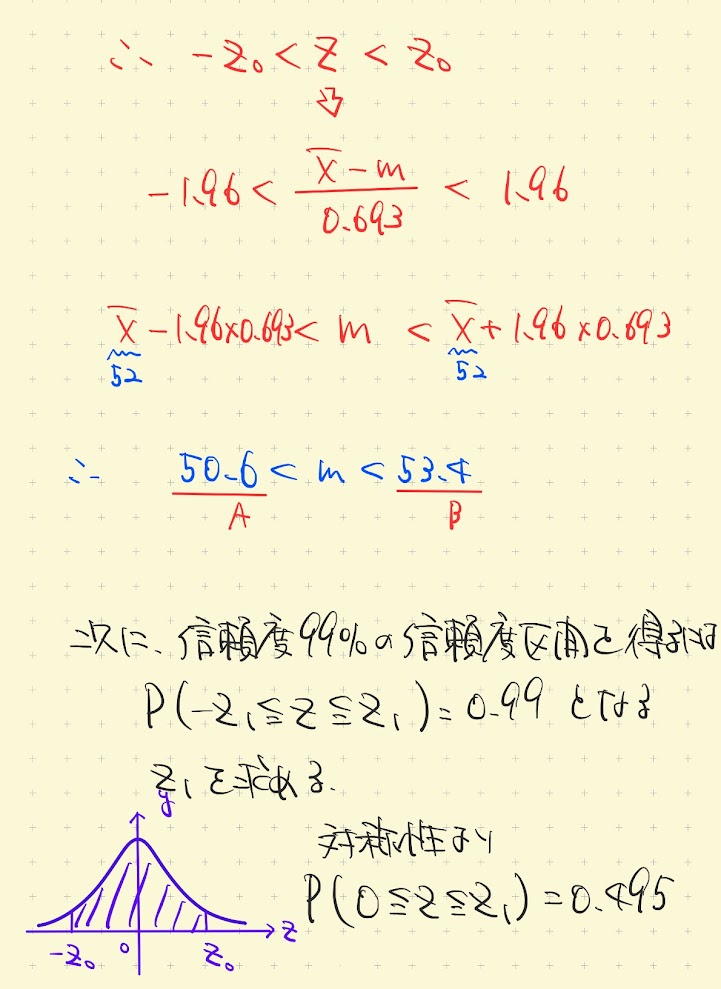 ∴ -z₀ < Z < z₀
⇩
-1.96 < (X̄ - m) / 0.693 < 1.96
X̄ - 1.96×0.693 < m < X̄ + 1.96×0.693
52 52
∴ 50.6 < m < 53.4
A B
次に、信頼度99%の信頼度区間を得るには
P(-z₁ ≦ z ≦ z₁) = 0.99 となる
z₁を求める.
y
対称性より
P(0 ≦ z ≦ z₁) = 0.495
-z₀ 0 z₀ z